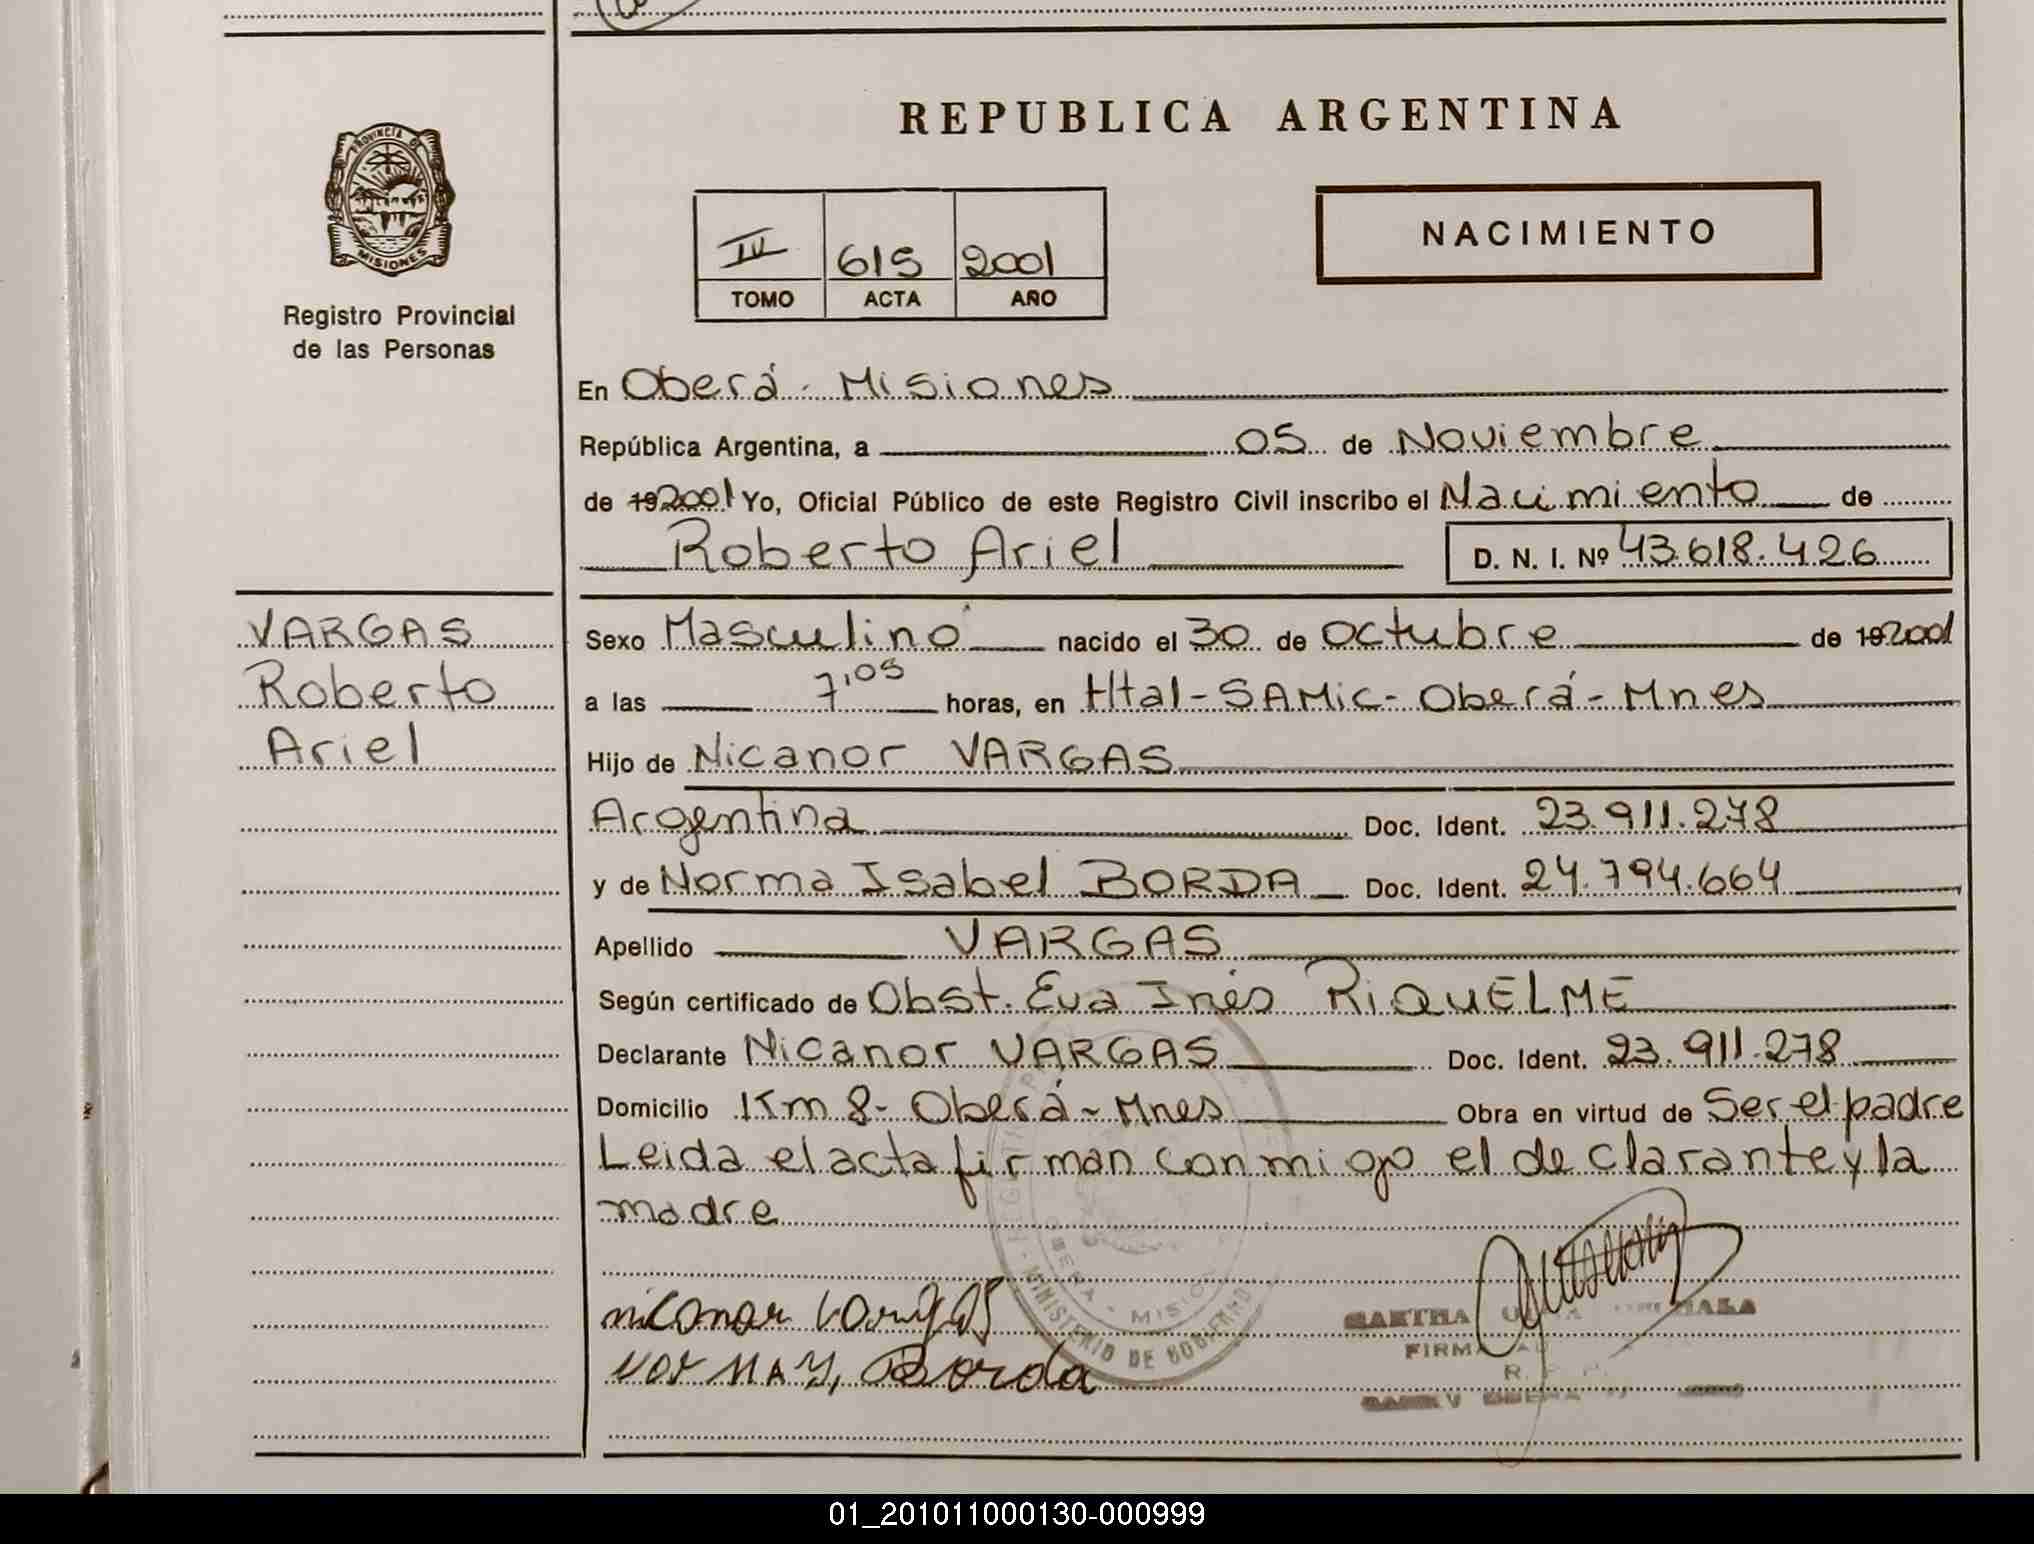 REPUBLICA ARGENTINA
PROVINCIA DE
MISIONES
Registro Provincial
de las Personas
IV 615 2001
TOMO ACTA AÑO
NACIMIENTO
En Oberá - Misiones
República Argentina, a 05 de Noviembre
de 19 2001 Yo, Oficial Público de este Registro Civil inscribo el Nacimiento de
Roberto Ariel D. N. I. Nº 43.618.426
VARGAS
Roberto
Ariel
Sexo Masculino nacido el 30 de octubre de 19 2001
a las 7,05 horas, en Htal-SAMic-Oberá-Mnes
Hijo de Nicanor VARGAS
Argentina Doc. Ident. 23.911.278
y de Norma Isabel BORDA Doc. Ident. 24.794.664
Apellido VARGAS
Según certificado de Obst. Eva Inés RIQUELME
Declarante Nicanor VARGAS Doc. Ident. 23.911.278
Domicilio Km 8- Oberá- Mnes Obra en virtud de Ser el padre
Leida el acta firman conmigo el declarante y la
madre
nicanor Vargas
NORMA I. Borda
MINISTERIO DE GOBIERNO
OBERA - MISIONES
R. P. P.
01_201011000130-000999